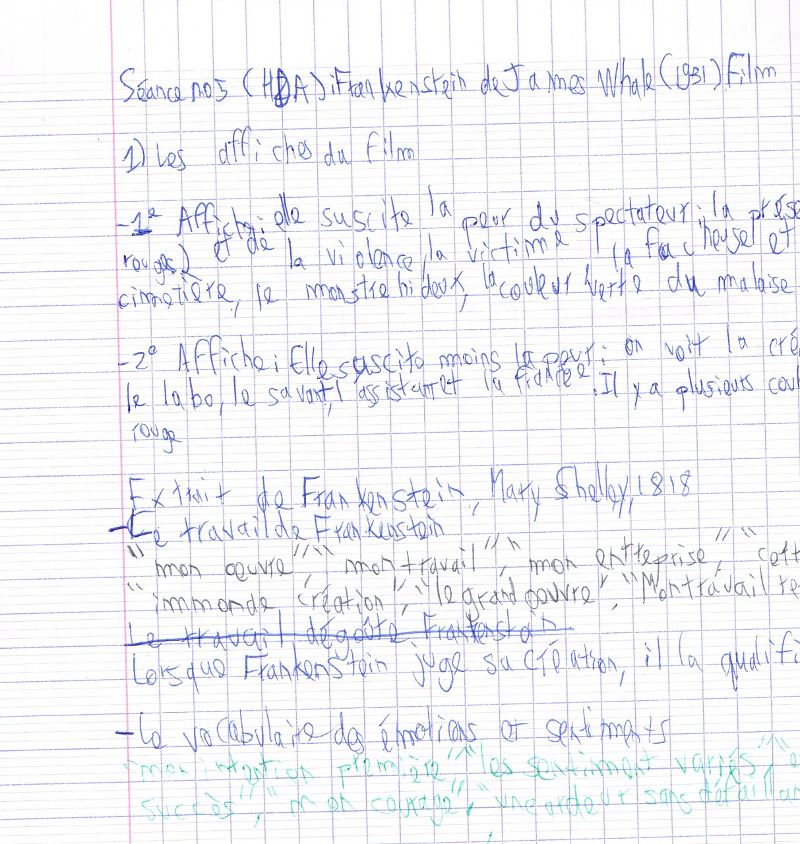 Séance no5 (HDA) : Frankenstein de James Whale (1931) Film
1) Les affiches du film
-1e Affiche : elle suscite la peur du spectateur : la prése
rouges) et de la violence, la victime (la fâcheuse) et
cimetière, le monstre hideux, la couleur verte du malaise
-2e Affiche : Elle suscite moins la peur : on voit la cré
le labo, le savant, l'assistant et la fiancée. Il y a plusieurs coul
rouge
Extrait de Frankenstein, Mary Shelley, 1818
-Le travail de Frankenstein
"mon oeuvre", "mon travail", "mon entreprise", "cett
"immonde création", "le grand oeuvre", "Mon travail re
Le travail dégoûte Frankenstein
Lorsque Frankenstein juge sa création, il la qualifi
-Le vocabulaire des émotions et sentiments
"mon intention première" "les sentiment variés", "
succès", "mon courage", "une ardeur sans défaillan